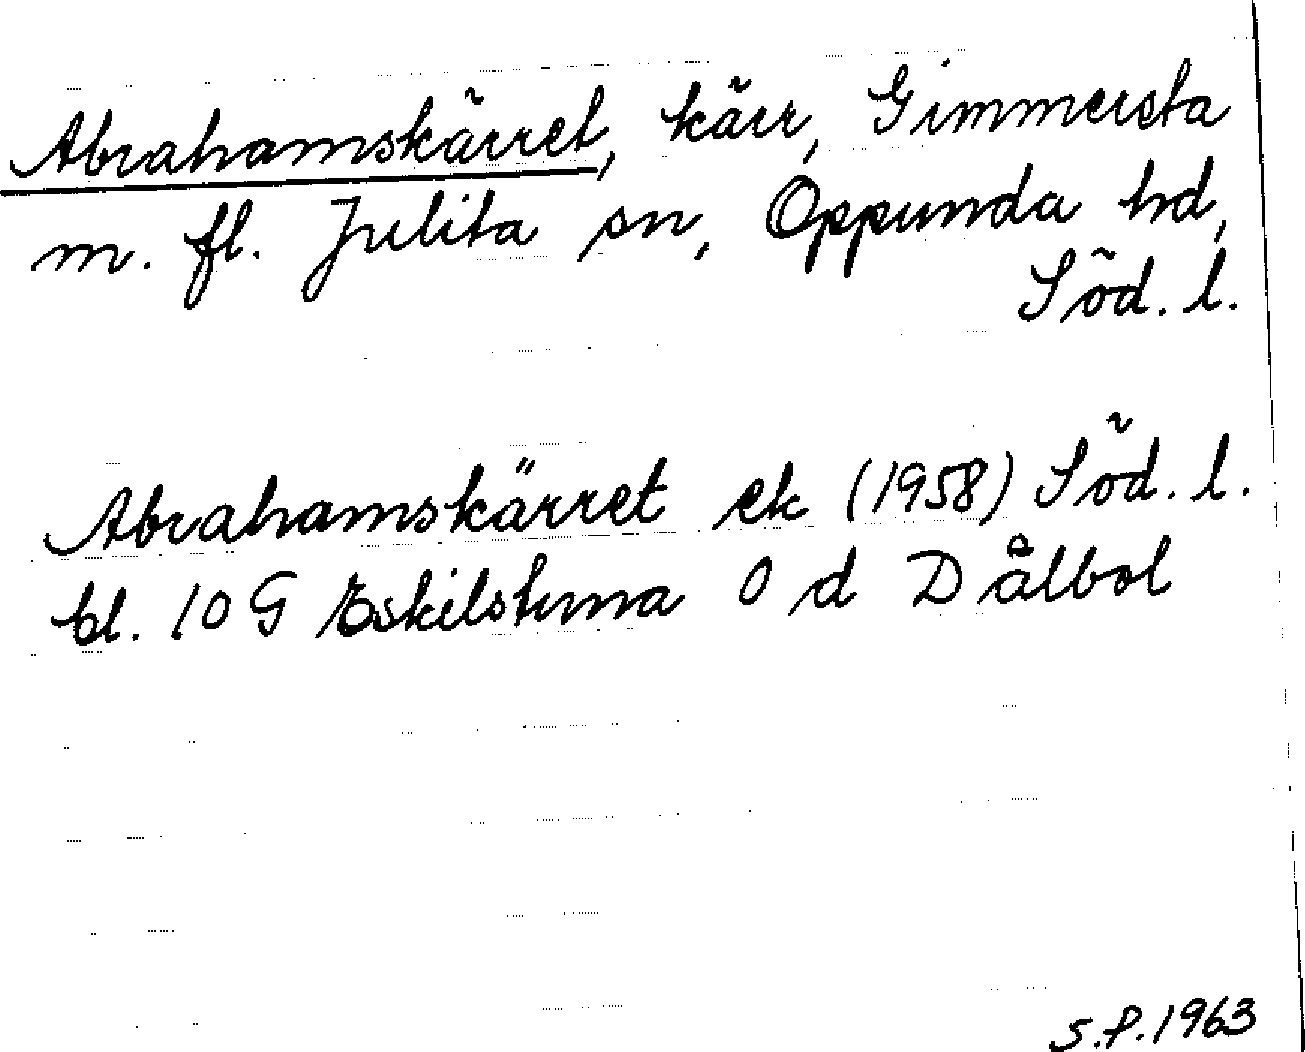 Abrahamskärret, kärr, Gimmersta
m. fl. Julita sn, Oppunda hd,
Söd. l.
Abrahamskärret ek (1958) Söd. l.
bl. 10 G Eskilstuna O d Dålbol
S.P.1963